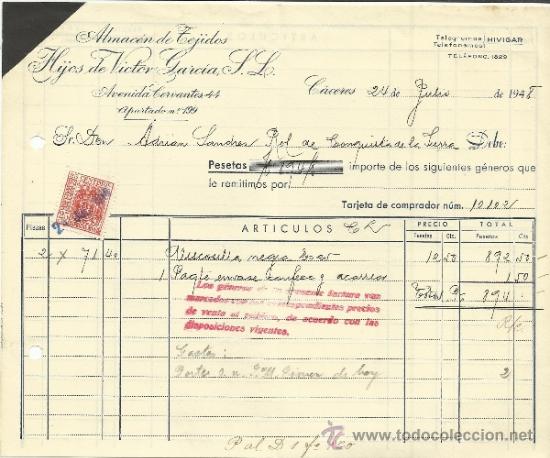 Almacén de Tejidos
Hijos de Victor García, S. L.
Avenida Cervantes 44
Apartado nº 199
Telegramas HIVIGAR
Telefonemas
TELÉFONO. 1829
Cáceres 24 de Julio de 1948
Sr. Don Adrian Sandres Rol de Conquista de la Sierra Debe:
Pesetas importe de los siguientes géneros que
le remitimos por
Tarjeta de comprador núm. 10.102
Piezas ARTICULOS PRECIO TOTAL
Pesetas Cts. Pesetas Cts
2 x 71 40 negra 12 50 892 50
1 Paqte envase y acarreo 1 50
894
Los géneros de la presente factura van
marcados con sus correspondientes precios
de venta al público, de acuerdo con las
disposiciones vigentes.
Gastos:
Portes de hoy 2
www.todocoleccion.net